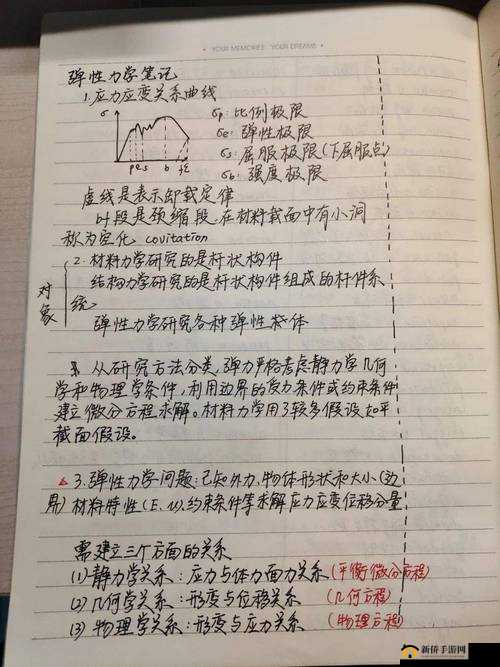 YOUR MEMORIES YOUR DREAMS
弹性力学笔记
1.应力应变关系曲线
σ
p e s b f ε
σp: 比例极限
σe: 弹性极限
σs: 屈服极限(下屈服点)
σb: 强度极限
虚线是表示卸载定律
bf段是颈缩段,在材料截面中有小洞
称为空化 covitation
对象
2.材料力学研究的是杆状构件
结构力学研究的是杆状构件组成的杆件系
统
弹性力学研究各种弹性体
从研究方法分类,弹力严格考虑静力学几何
学和物理学条件,利用边界的应力条件或约束条件
建立微分方程求解。材料力学用了较多假设如平
截面假设。
3.弹性力学问题:已知外力、物体形状和大小(边
界)材料特性(E、μ)、约束条件等求解应力应变位移分量
需建立三个方面的关系
(1)静力学关系:应力与体力面力关系(平衡微分方程)
(2)几何学关系:形变与位移关系(几何方程)
(3)物理学关系:形变与应力关系(物理方程)
新侨手游网